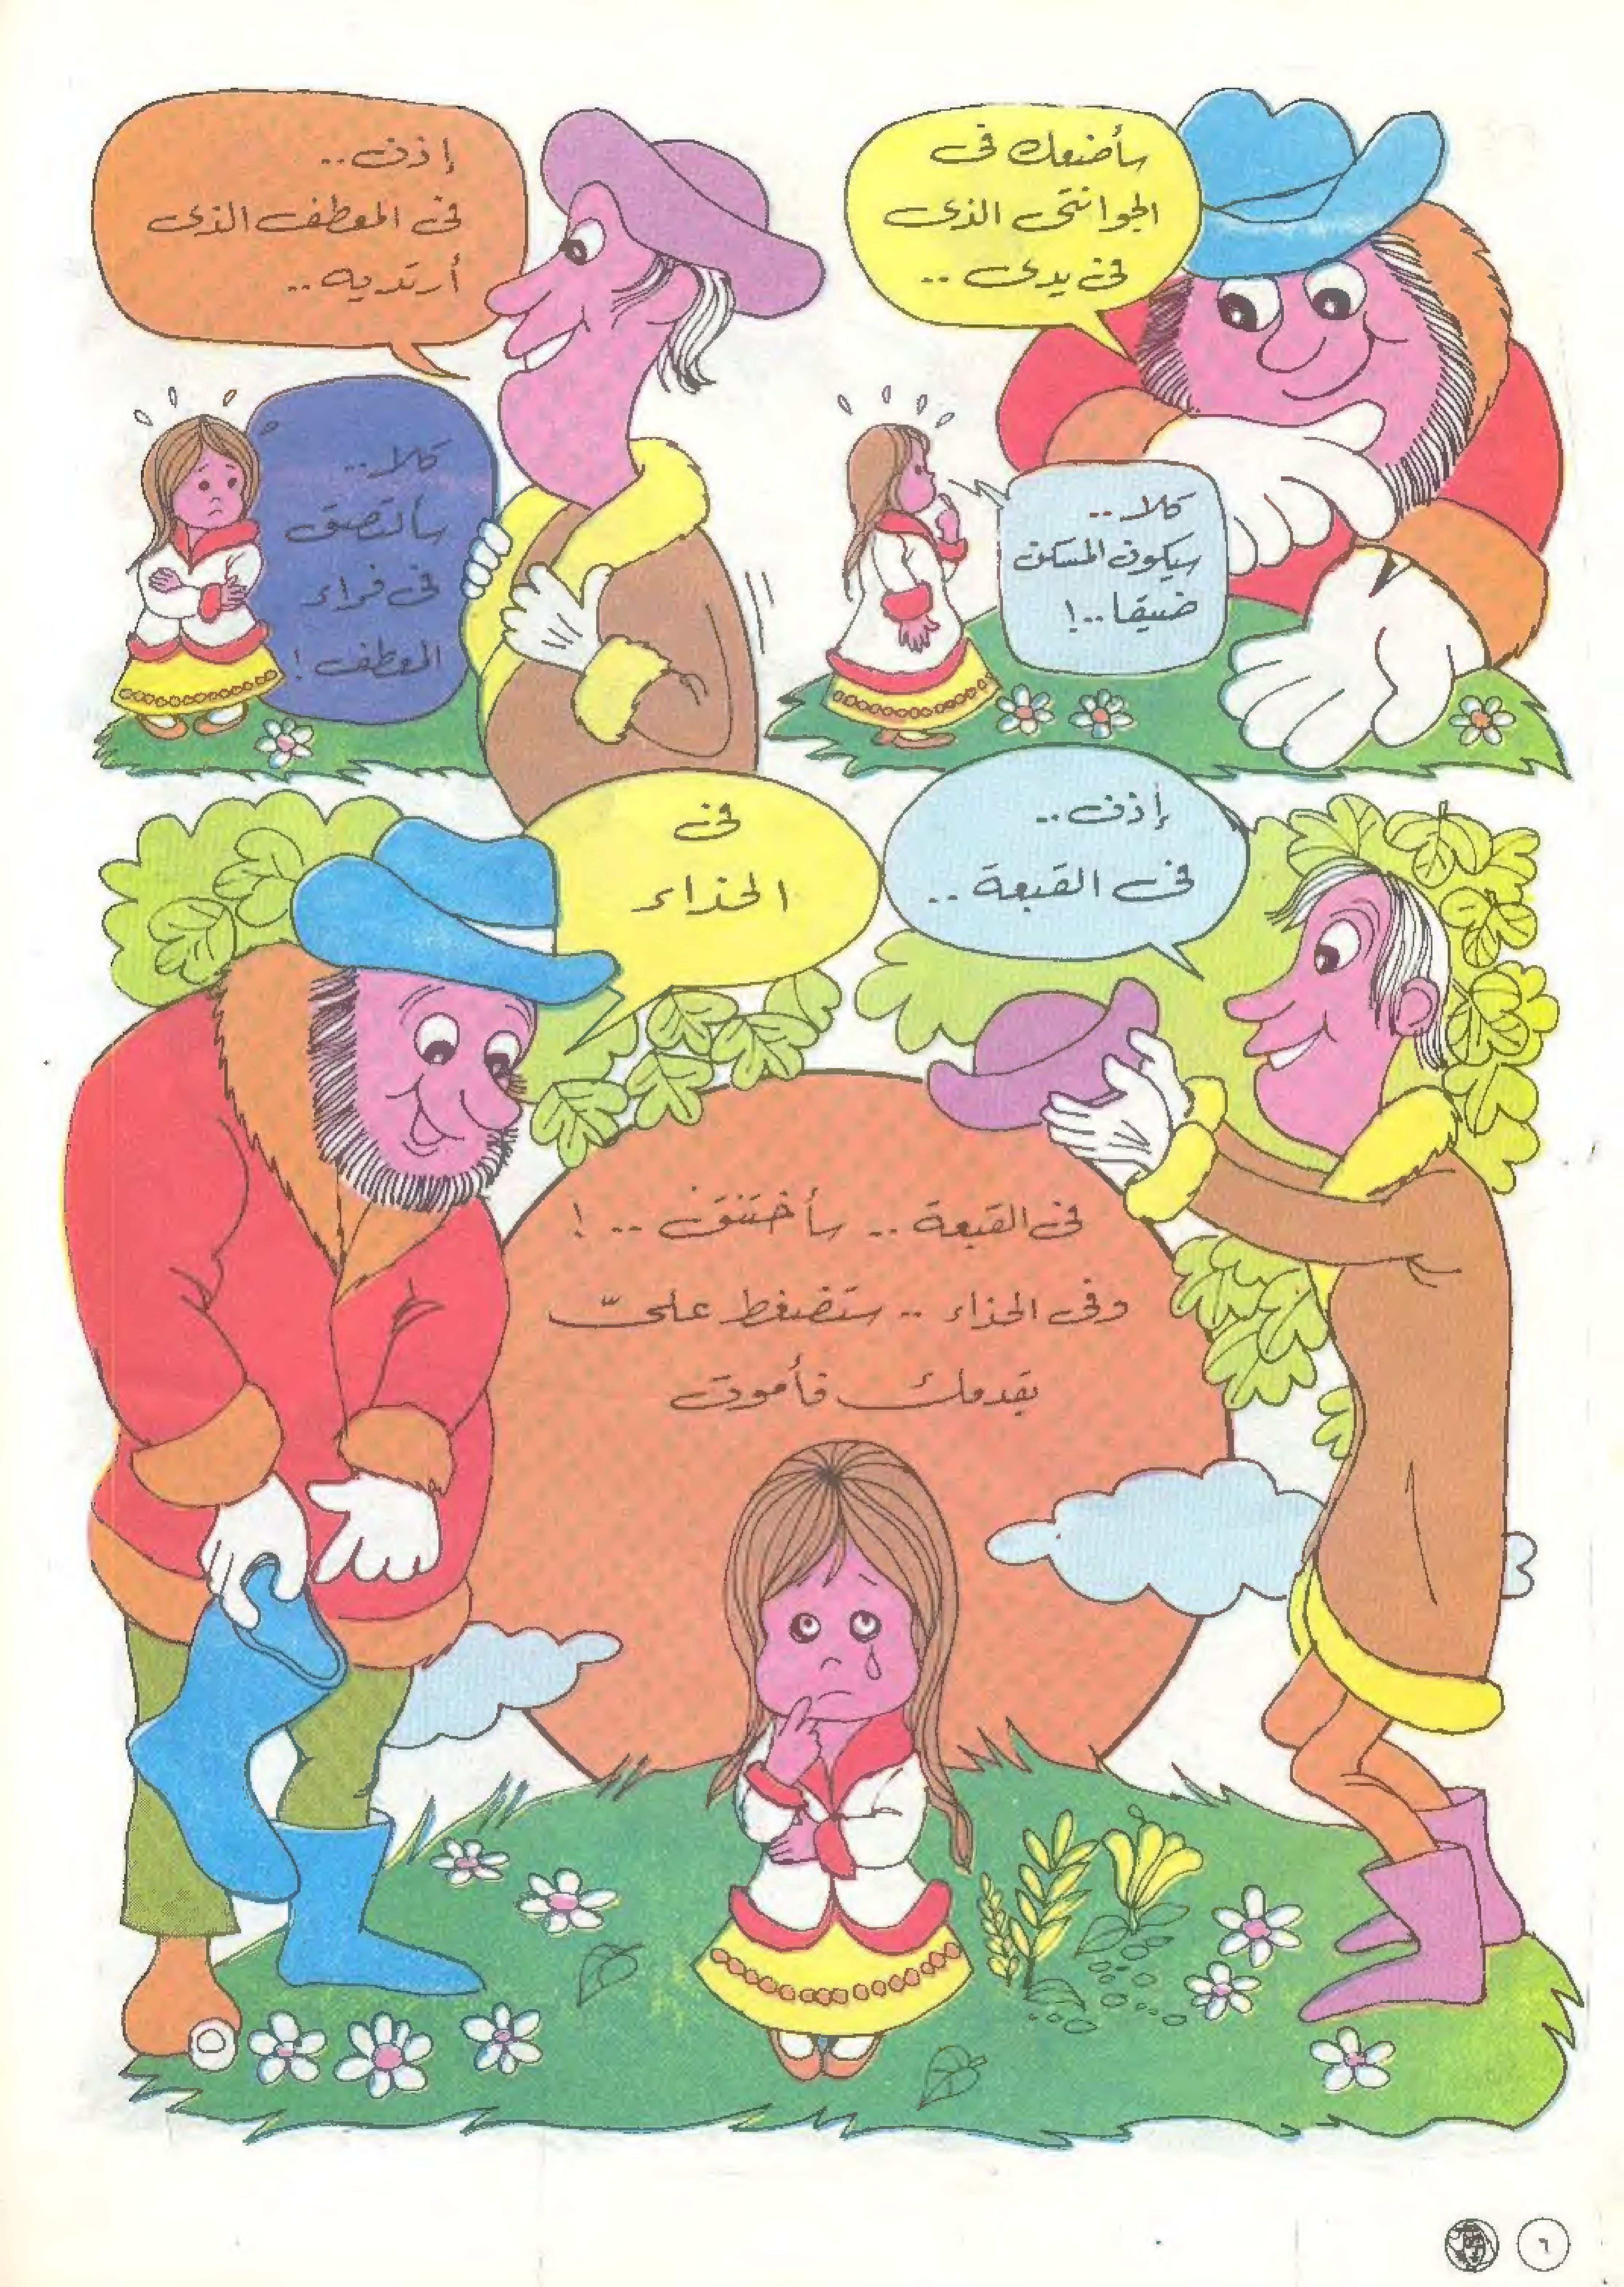 سأضعك فى
الجوانتى الذى
فى يدى ..
كلا ..
سيكون المسكن
ضيقا ..!
إذن ..
فى المعطف الذى
أرتديه ..
كلا ..
سألتصق
فى فراء
المعطف !
إذن ..
فى القبعة ..
فى
الحذاء
فى القبعة .. سأختنق .. !
وفى الحذاء .. ستضغط علىّ
بقدمك فأموت
٦